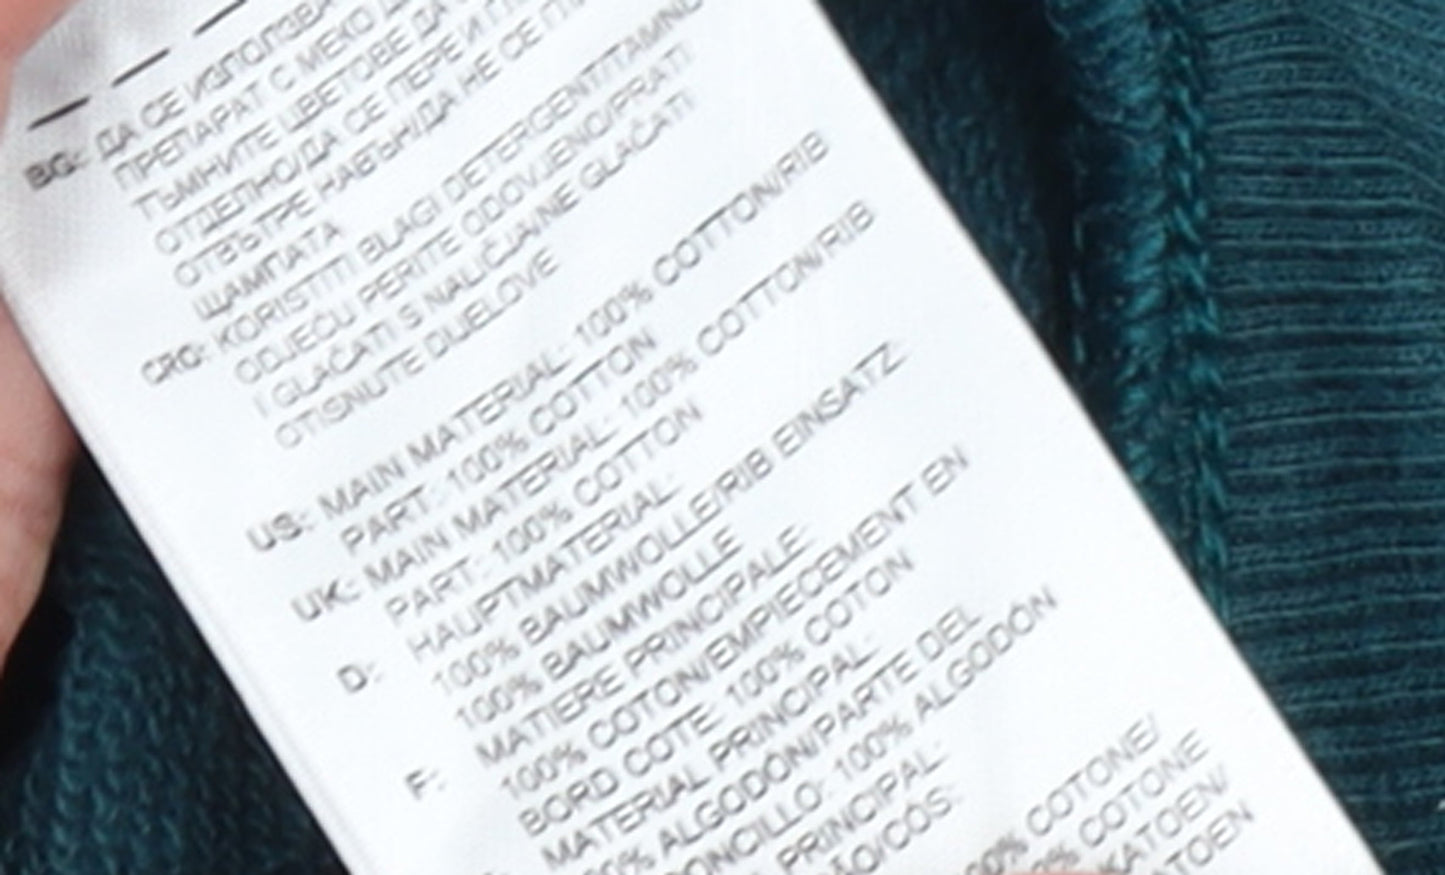 BG: ДА СЕ ИЗПОЛЗВА
ПРЕПАРАТ С МЕКО
ТЪМНИТЕ ЦВЕТОВЕ ДА
ОТДЕЛНО/ДА СЕ ПЕРЕ И
ОТВЪТРЕ НАВЪН/ДА НЕ СЕ
ЩАМПАТА
CRO: KORISTITI BLAGI DETERGENT/TAMNU
ODJEĆU PERITE ODOVJENO/PRATI
I GLAČATI S NALIČJA/NE GLAČATI
OTISNUTE DIJELOVE
US: MAIN MATERIAL: 100% COTTON/RIB
PART: 100% COTTON
UK: MAIN MATERIAL: 100% COTTON/RIB
PART: 100% COTTON
D: HAUPTMATERIAL:
100% BAUMWOLLE/RIB EINSATZ:
100% BAUMWOLLE
F: MATIERE PRINCIPALE:
100% COTON/EMPIECEMENT EN
BORD COTE: 100% COTON
MATERIAL PRINCIPAL:
ALGODÓN/PARTE DEL
100% ALGODÓN
PRINCIPAL:
COTONE/
COTONE